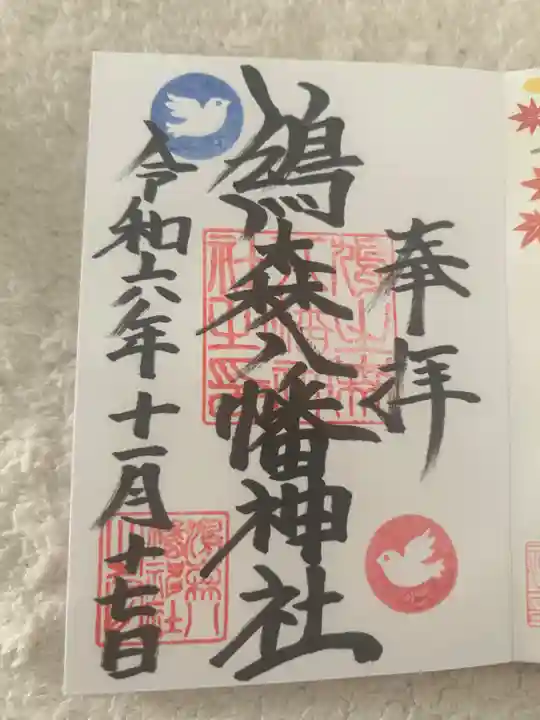 奉拝
鳩森八幡神社
令和六年十一月十七日